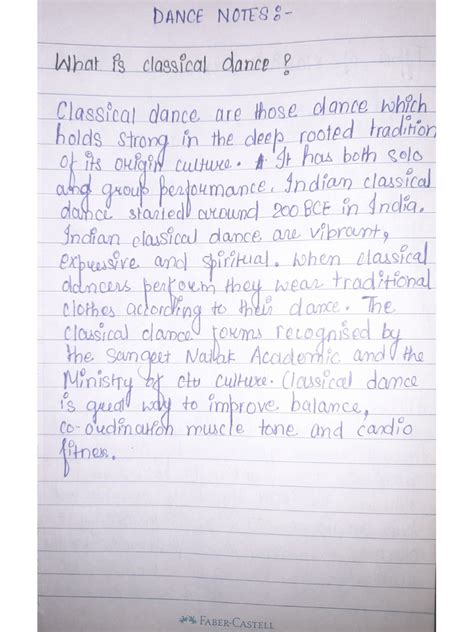 DANCE NOTES:-
What is classical dance ?
Classical dance are those dance which
holds strong in the deep rooted tradition
of its origin culture. It has both solo
and group performance. Indian classical
dance started around 200 BCE in India.
Indian classical dance are vibrant,
expressive and spiritual. When classical
dancers perform they wear traditional
clothes according to their dance. The
classical dance forms recognised by
the Sangeet Natak Academic and the
Ministry of culture. Classical dance
is great way to improve balance,
co-ordination muscle tone and cardio
fitnes.
FABER-CASTELL